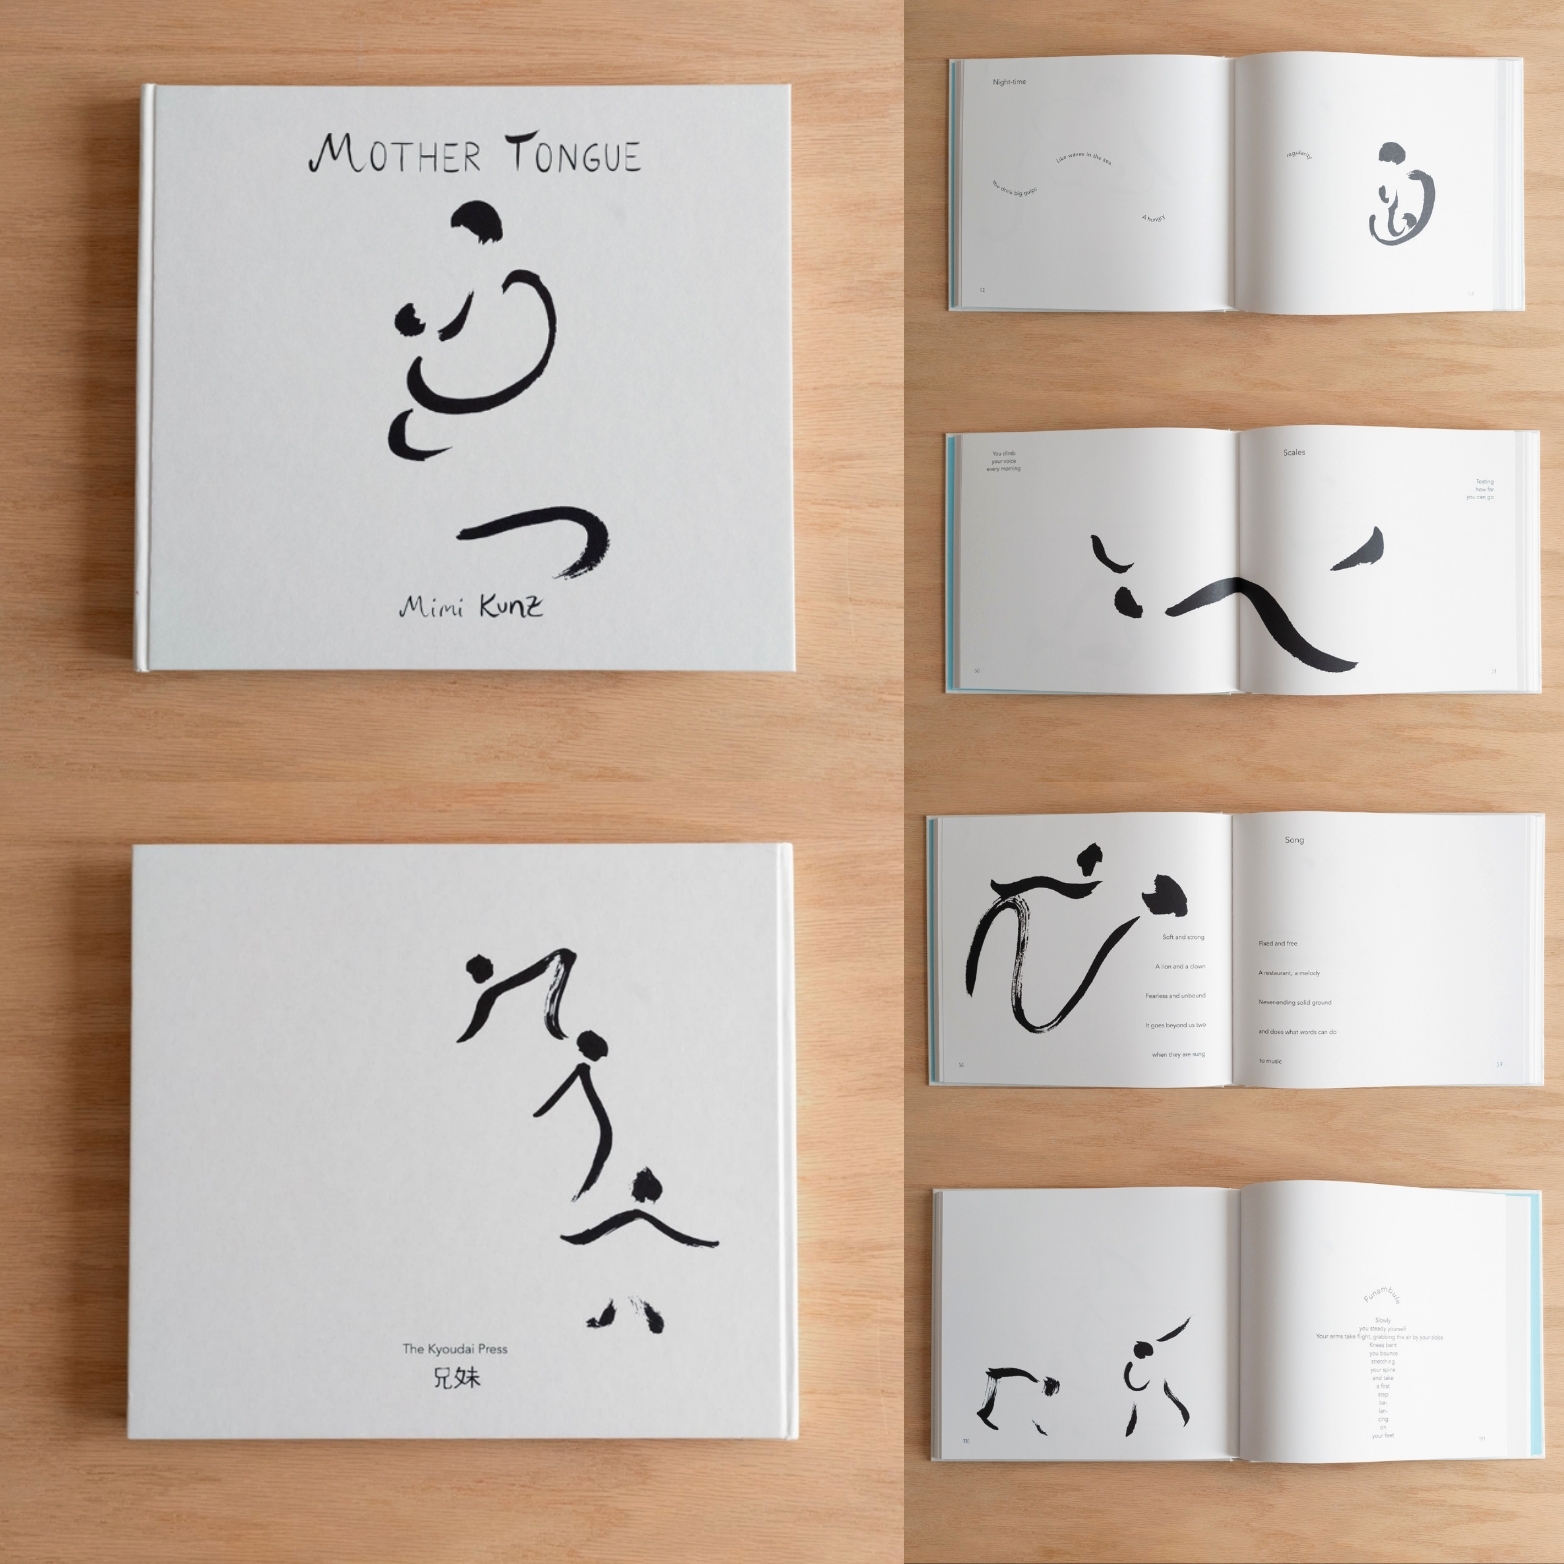 MOTHER TONGUE
Mimi KunZ
The Kyoudai Press
兄妹
Night-time
You drink big gulps
Like waves in the sea
A hungry
regularity
You climb
your voice
every morning
Scales
Testing
how far
you can go
50
Song
Soft and strong
A lion and a clown
Fearless and unbound
It goes beyond us two
when they are sung
Fixed and free
A restaurant, a melody
Never-ending solid ground
and does what words can do
to music
Funambule
Slowly
you steady yourself
Your arms take flight, grabbing the air by your sides
Knees bent
you bounce
stretching
your spine
and take
a first
step
bal-
lan-
cing
on
your feet